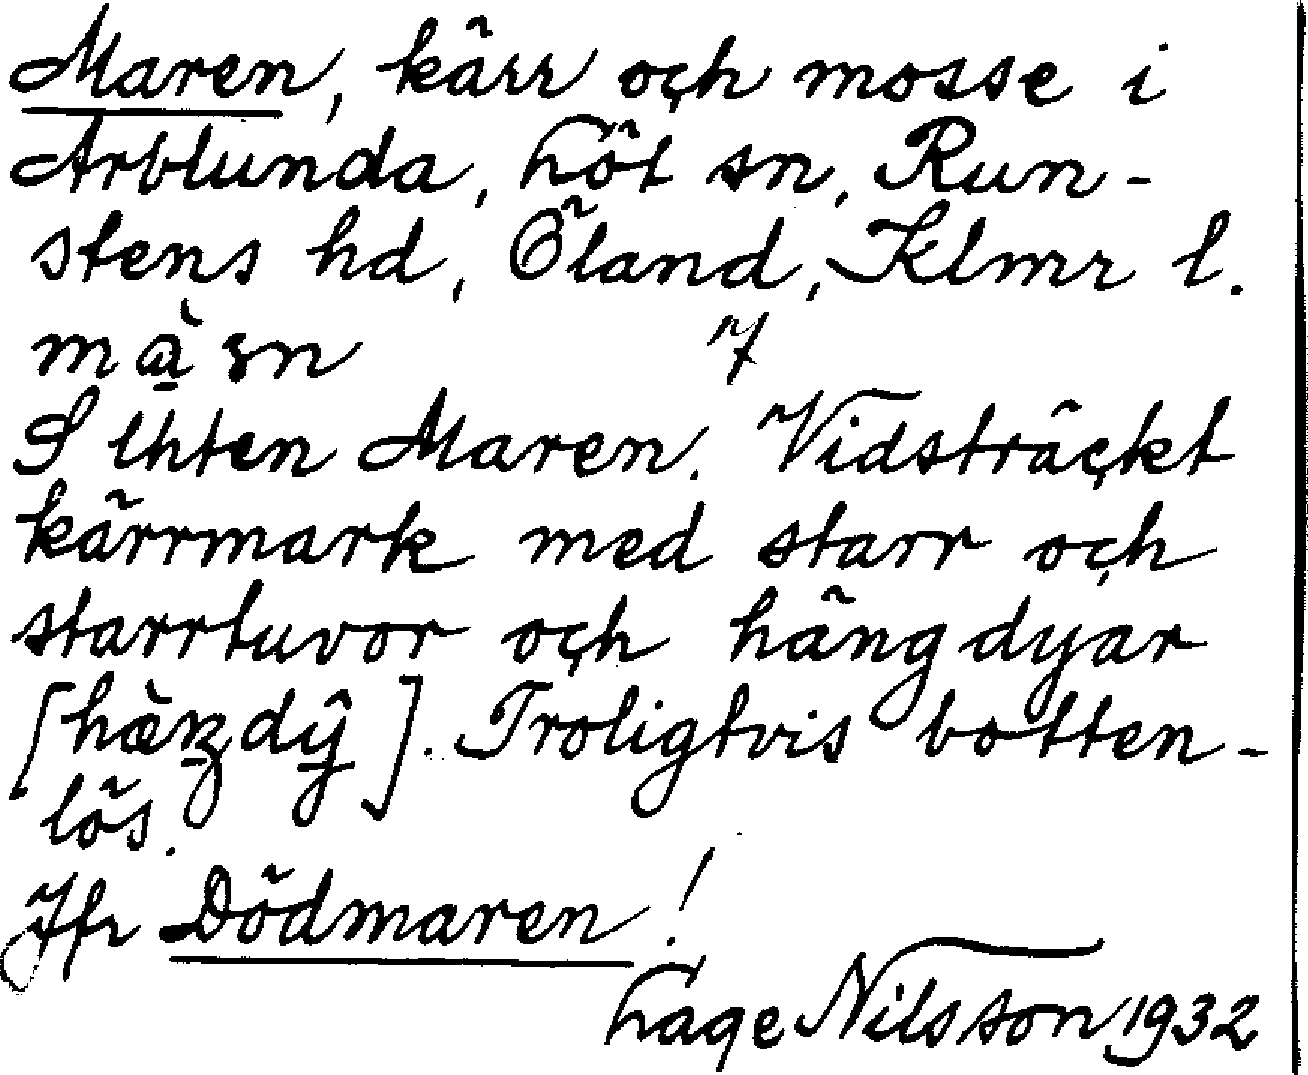 Maren, kärr och mosse i
Arblunda, Löt sn, Run-
stens hd, Öland, Klmr l.
mɑ̀ṣn 7
S Maren. Vidsträckt
kärrmark med starr och
starrtuvor och hängdyar
[hæ̀ŋdy]. Troligtvis botten-
lös.
Jfr Dödmaren!
Lage Nilsson 1932